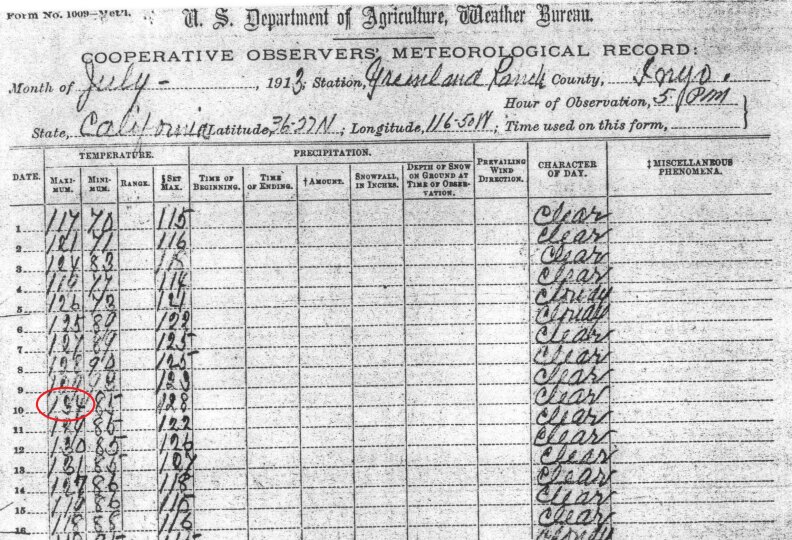 Form No. 1009—Met'l.
U. S. Department of Agriculture, Weather Bureau.
COOPERATIVE OBSERVERS' METEOROLOGICAL RECORD:
Month of July - , 1913; Station, Greenland Ranch County, Inyo.
Hour of Observation, 5 PM
State, California Latitude, 36-27N; Longitude, 116-50W; Time used on this form,
TEMPERATURE. PRECIPITATION.
DATE. MAXIMUM. MINIMUM. RANGE. §SET MAX. TIME OF BEGINNING. TIME OF ENDING. †AMOUNT. SNOWFALL, IN INCHES. DEPTH OF SNOW ON GROUND AT TIME OF OBSERVATION. PREVAILING WIND DIRECTION. CHARACTER OF DAY. ‡MISCELLANEOUS PHENOMENA.
1 117 70 115 Clear
2 121 71 116 Clear
3 124 83 Clear
4 77 114 Clear
5 126 121 Cloudy
6 125 89 122 Cloudy
7 127 89 125 Clear
8 90 125 Clear
9 123 Clear
10 134 85 128 Clear
11 129 86 122 Clear
12 130 85 126 Clear
13 131 85 127 Clear
14 127 86 118 Clear
15 86 115 Clear
16 118 88 116 Clear
Cloudy